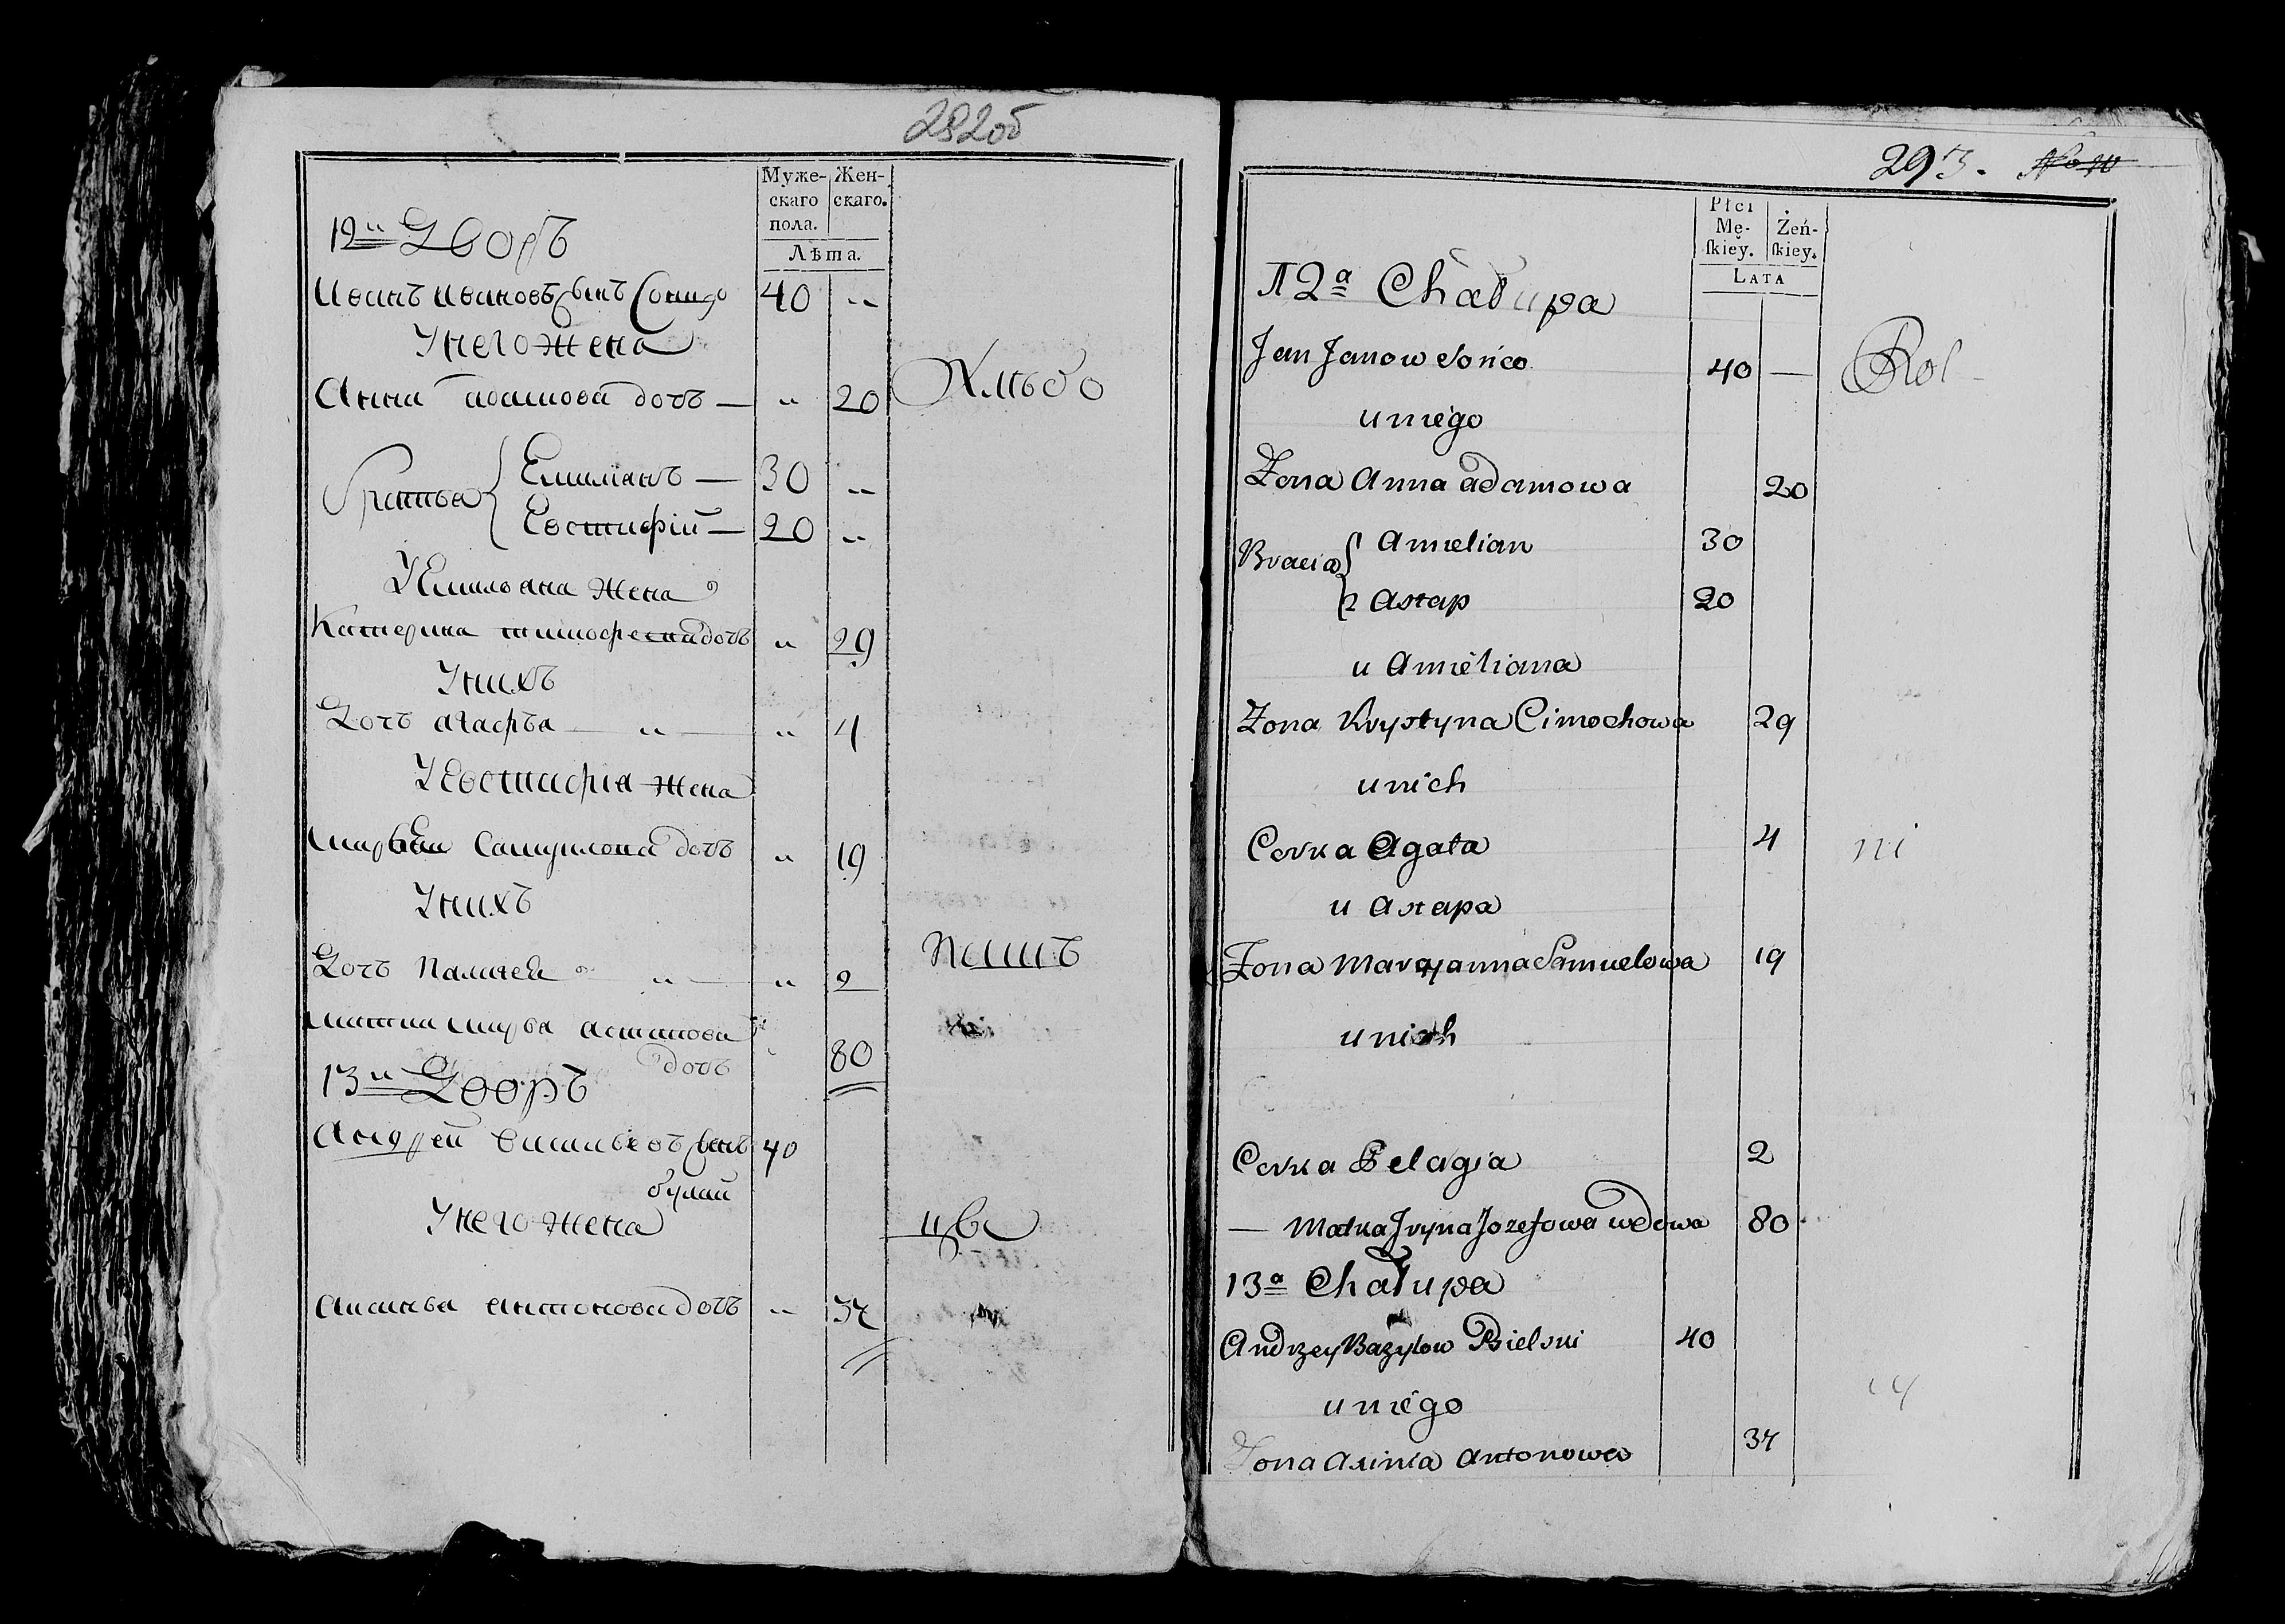 292об
Муже-
скаго
пола.
Жен-
скаго.
Лѣта.
12й Дворъ
Иванъ Ивановъ Сынъ 40 "
У него жена
Анна Адамова дочь — " 20
Хлѣбо
Братья { Емилианъ — 30 "
Евстафій — 20 "
У Емильяна жена
Катерина тимофеева дочь " 29
У нихъ
Дочь агафья — " — " 4
У Евстафія жена
Самуилова дочь " 19
У нихъ
Дочь Палагея " — " 2
пашъ
80
дочь
13й Дворъ
Андрей васильевъ Сынъ 40
У него жена
цы
антонова дочь " 37
293. No 10
Płci
Mę-
skiey.
Żeń-
skiey.
LATA
12a Chałupa
Jan Janow Sońco 40 —
Rol
u niego
Żona Anna adamowa 20
Bracia { 1 Amelian 30
2 Astap 20
u Ameliana
Żona Krystyna Cimochowa 29
u nich
Corka Agata 4
ni
u Astapa
Żona Maryanna Samuelowa 19
u nich
Corka Pelagia 2
— Matka Jryna Jozefowa wdowa 80
13a Chałupa
Andrzey Bazylow Bielski 40
cy
u niego
Żona Axinia Antonowa 37